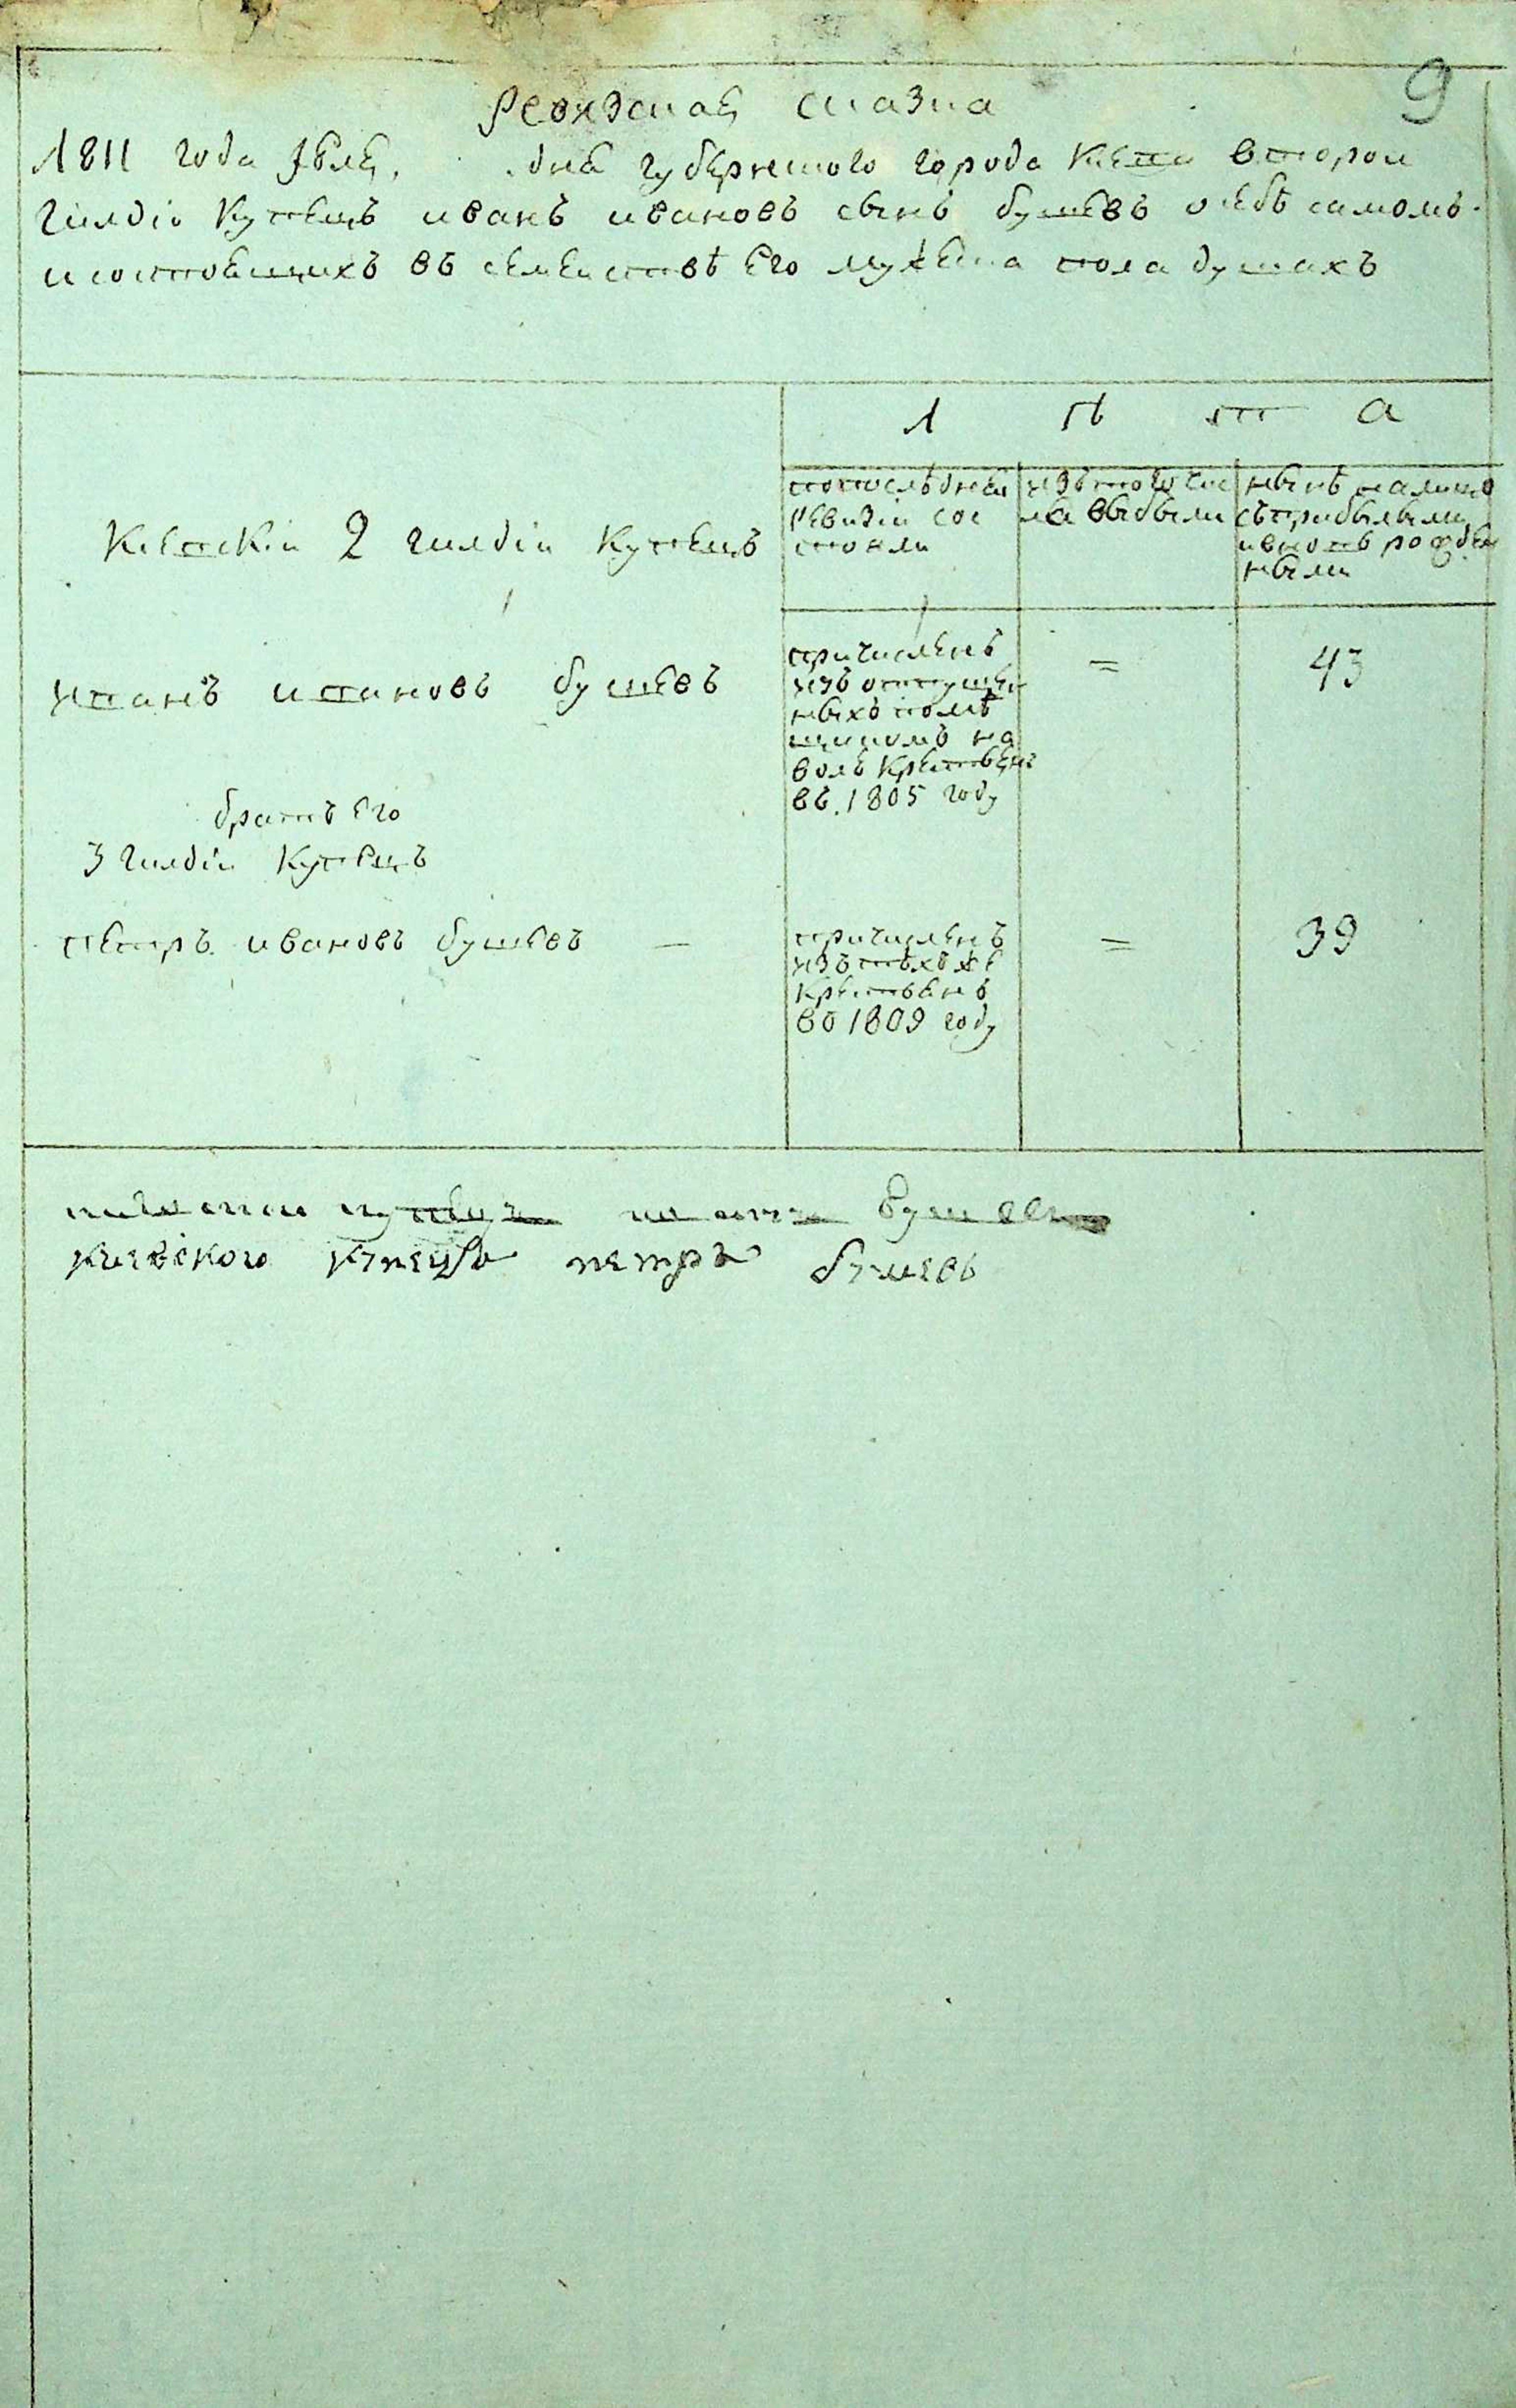 9
Ревизская сказка
1811 года Июля, дня губернского города Кіева второй
гилдіи Купецъ иванъ ивановъ сынъ бушевъ о себѣ самомъ
и состоящихъ въ семействѣ Его мужеска пола душахъ
Л ѣ т а
Кіевскій 2 гилдіи Купецъ
по последней
ревизіи сос
тояли
изъ того чис
ла выбыли
нынѣ налицо
съ прибылыми
и вновь рожден
ными
иванъ ивановъ бушевъ
причисленъ
изъ отпущен
ныхъ помѣ
щикомъ на
волю Крестьянъ
въ 1805 году
=
43
братъ Его
3 гилдіи Купецъ
петръ ивановъ бушевъ —
причисленъ
изъ тѣхъ же
Крестьянъ
въ 1809 году
=
39
киевского купецъ петръ бушевъ